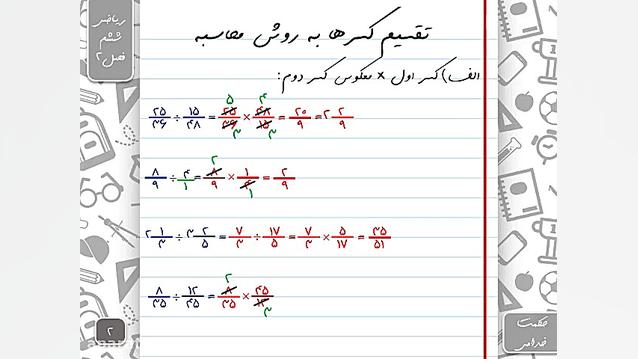 ریاضی
ششم
فصل ۲
تقسیم کسرها به روش محاسبه
الف) کسر اول × معکوس کسر دوم:
۵ ۴
۲۵/۳۶ ÷ ۱۵/۴۸ = ۲۵/۳۶ × ۴۸/۱۵ = ۲۰/۹ = ۲ ۲/۹
۳ ۳
۲
۸/۹ ÷ ۴/۱ = ۸/۹ × ۱/۴ = ۲/۹
۱
۲ ۱/۳ ÷ ۳ ۲/۵ = ۷/۳ ÷ ۱۷/۵ = ۷/۳ × ۵/۱۷ = ۳۵/۵۱
۲
۸/۳۵ ÷ ۱۲/۴۵ = ۸/۳۵ × ۴۵/۱۲
۳
۲
حکمت